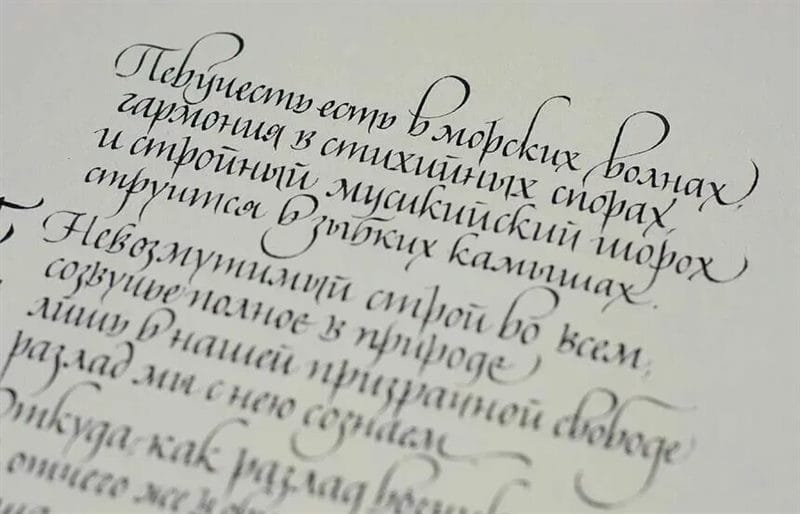 Певучесть есть в морских волнах,
гармония в стихийных спорах,
и стройный мусикийский шорох
струится в зыбких камышах.
Невозмутимый строй во всем,
созвучье полное в природе,
лишь в нашей призрачной свободе
разлад мы с нею сознаем.
Откуда, как разлад возник
отчего же в